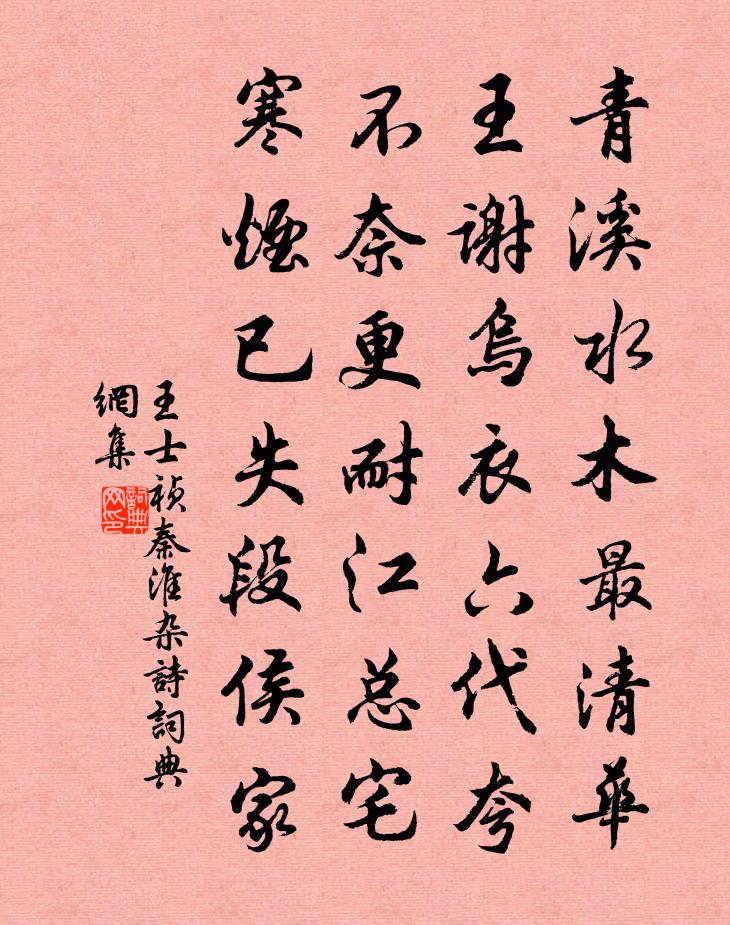 青溪水木最清華
王謝烏衣六代夸
不奈更耐江总宅
寒煙已失段侯家
王士祯秦淮杂詩詞典
網集
詞典
网印